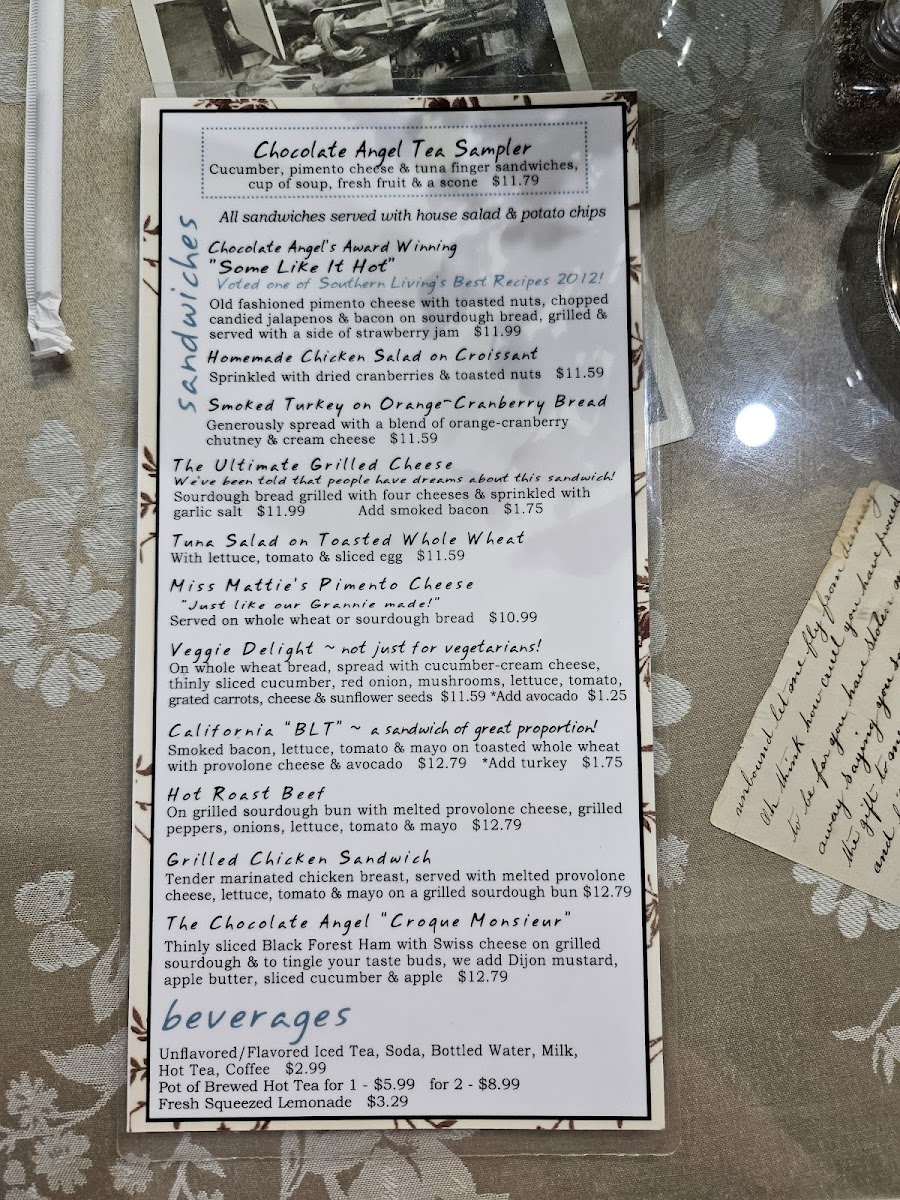 Chocolate Angel Tea Sampler
Cucumber, pimento cheese & tuna finger sandwiches,
cup of soup, fresh fruit & a scone $11.79
All sandwiches served with house salad & potato chips
sandwiches
Chocolate Angel's Award Winning
"Some Like It Hot"
Voted one of Southern Living's Best Recipes 2012!
Old fashioned pimento cheese with toasted nuts, chopped
candied jalapenos & bacon on sourdough bread, grilled &
served with a side of strawberry jam $11.99
Homemade Chicken Salad on Croissant
Sprinkled with dried cranberries & toasted nuts $11.59
Smoked Turkey on Orange-Cranberry Bread
Generously spread with a blend of orange-cranberry
chutney & cream cheese $11.59
The Ultimate Grilled Cheese
We've been told that people have dreams about this sandwich!
Sourdough bread grilled with four cheeses & sprinkled with
garlic salt $11.99 Add smoked bacon $1.75
Tuna Salad on Toasted Whole Wheat
With lettuce, tomato & sliced egg $11.59
Miss Mattie's Pimento Cheese
"Just like our Grannie made!"
Served on whole wheat or sourdough bread $10.99
Veggie Delight ~ not just for vegetarians!
On whole wheat bread, spread with cucumber-cream cheese,
thinly sliced cucumber, red onion, mushrooms, lettuce, tomato,
grated carrots, cheese & sunflower seeds $11.59 *Add avocado $1.25
California "BLT" ~ a sandwich of great proportion!
Smoked bacon, lettuce, tomato & mayo on toasted whole wheat
with provolone cheese & avocado $12.79 *Add turkey $1.75
Hot Roast Beef
On grilled sourdough bun with melted provolone cheese, grilled
peppers, onions, lettuce, tomato & mayo $12.79
Grilled Chicken Sandwich
Tender marinated chicken breast, served with melted provolone
cheese, lettuce, tomato & mayo on a grilled sourdough bun $12.79
The Chocolate Angel "Croque Monsieur"
Thinly sliced Black Forest Ham with Swiss cheese on grilled
sourdough & to tingle your taste buds, we add Dijon mustard,
apple butter, sliced cucumber & apple $12.79
beverages
Unflavored/Flavored Iced Tea, Soda, Bottled Water, Milk,
Hot Tea, Coffee $2.99
Pot of Brewed Hot Tea for 1 - $5.99 for 2 - $8.99
Fresh Squeezed Lemonade $3.29
unbound let me fly from
Oh think how cruel you have
to be for you have stolen
away saying you
the gift to
and